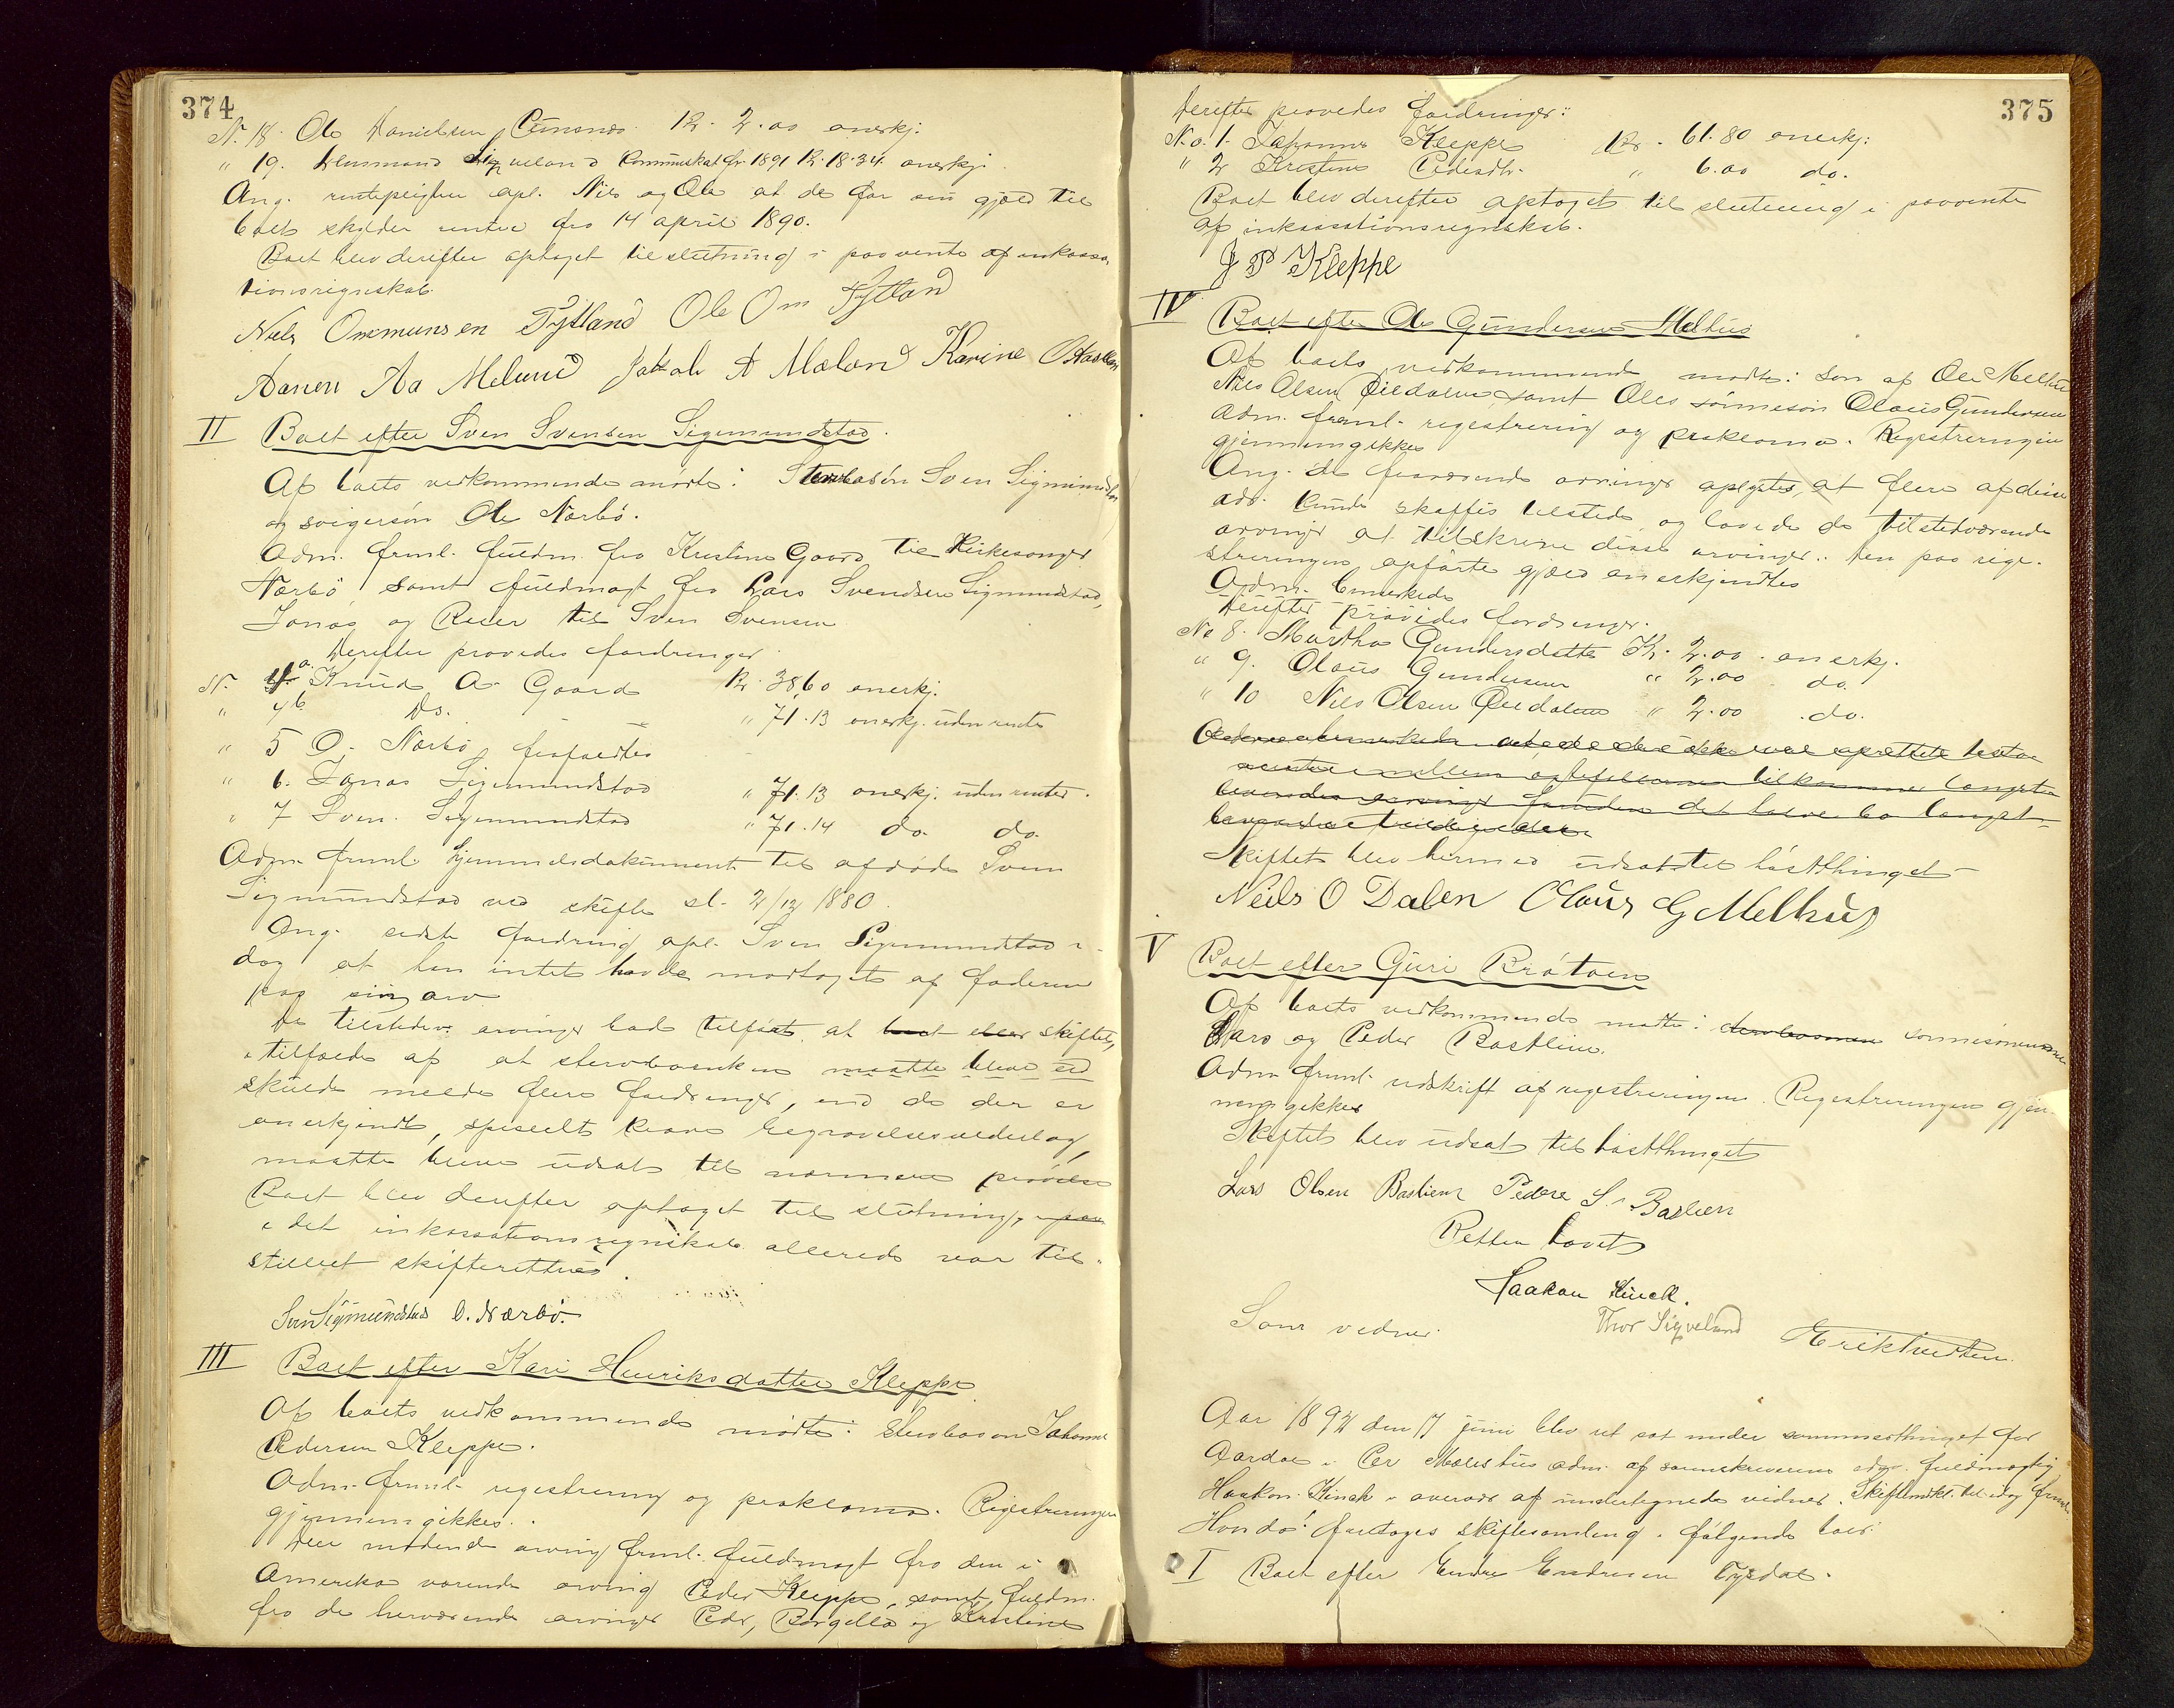 374
N. 18. Ole Danielsen Kr. 2.00 anerkj.
" 19. Lensmand Sigveland Communeskat for 1891 Kr. 18.34 anerkj.
Ang. rentepligten opl. Nils og Ole at de for sin gjæld til
boet skylder renter fra 14 april 1890.
Boet blev derefter optaget til slutning i paavente af inkassa-
tionsregnskab.
Niels Ommunsen Tytland Ole Om Tytland
Aanen Aa Melund Jakob A Mæland Karine
II Boet efter Sven Svensen Sigmundstad.
Af boets vedkommende mødte: Stervbosøn Sven Sigmundstad
og svigersøn Ole Nærbø.
Adm. freml. fuldm. fra Kristine Gaard til Kirkesanger
Nærbø samt fuldmagt fra Lars Svendsen Sigmundstad,
Jonas og Reier til Sven Svensen
Derefter prøvedes fordringer
N. 4 a. Knud A. Gaard Kr. 38,60 anerkj.
" 4 b. Do. " 71.13 anerkj. uden renter
" 5 O. Nærbø frafaldtes
" 6. Jonas Sigmundstad " 71.13 anerkj. uden renter.
" 7 Sven Sigmundstad " 71.14 do. do.
Adm. freml. hjemmelsdokument til afdøde Sven
Sigmundstad ved skifte sl. 2/12 1880.
Ang. sidste fordring opl. Sven Sigmundstad i-
dag at han intet havde modtaget af faderen
paa sin arv
De tilstedev. arvinger bad tilført, at boet eller skiftet,
i tilfælde af at stervboenken maatte blive ud
skulde melde flere fordringer, end de der er
anerkjendt, specielt krav begravelsesvederlag,
maatte blive udsat til nærmere prøvelse
Boet blev derefter optaget til slutning, paa
i det inkassationsregnskab allerede var til-
stillet skifteretten.
Sven Sigmundstad O. Nærbø.
III Boet efter Kari Henriksdatter Kleppe
Af boets vedkommende mødte: Stervbosøn Johannes
Pedersen Kleppe.
Adm. freml. registrering og proklama. Registreringen
gjennemgikkes.
Den mødende arving freml. fuldmagt fra den i
Amerika værende arving Peder Kleppe, samt fuldm.
fra de herværende arvinger Peder, Borgilla og Kristine
375
Derefter prøvedes fordringer:
No. 1. Johannes Kleppe Kr. 61.80 anerkj:
" 2 Kristine Pedersdtr. " 6.00 do.
Boet blev derefter optaget til slutning i paavente
af inkassationsregnskab.
J P Kleppe
IV Boet efter Ole Gundersen Melhus
Af boets vedkommende mødte: søn af Ole Melhus
Nils Olsen samt Oles sønnesøn Olaus Gundersen
Adm. freml. registrering og proklama. Registreringen
gjennemgikkes
Ang. de fraværende arvinger oplystes, at flere af disse
adr. kunde skaffes tilstede, og lovede de tilstedeværende
arvinger at tilskrive disse arvinger. Den paa regi-
streringen opførte gjæld anerkjendtes
Adm. bemerkede
Derefter prøvedes fordringer.
No 8. Martha Gundersdatter Kr. 2.00 anerkj.
" 9. Olaus Gundersen " 2.00 do.
" 10 Nils Olsen " 2.00 do.
Skiftet blev hermed udsat til høstthinget
Neils O Dalen Olaus G Melhus
V Boet efter Guri Bråtveit
Af boets vedkommende mødte: sønnesønnerne
Lars og Peder Bastlien.
Adm. freml. udskrift af registreringen. Registreringen gjen-
nemgikkes
Skiftet blev udsat til høstthinget
Lars Olsen Bastlien Peder S. Baslien
Retten hævet
Haakon Kinck.
Som vidner: Thor Sigveland Erik Tveiten
Aar 1892 den 17 juni blev ret sat under sommerthinget for
Aardal i Per Mælshus adm. af sorenskriverens edsv. fuldmægtig
Haakon Kinck i overvær af undertegnede vidner. freml.
Hvorda! foretages skiftesamling i følgende boer:
I Boet efter Endre Endresen Tysdal.